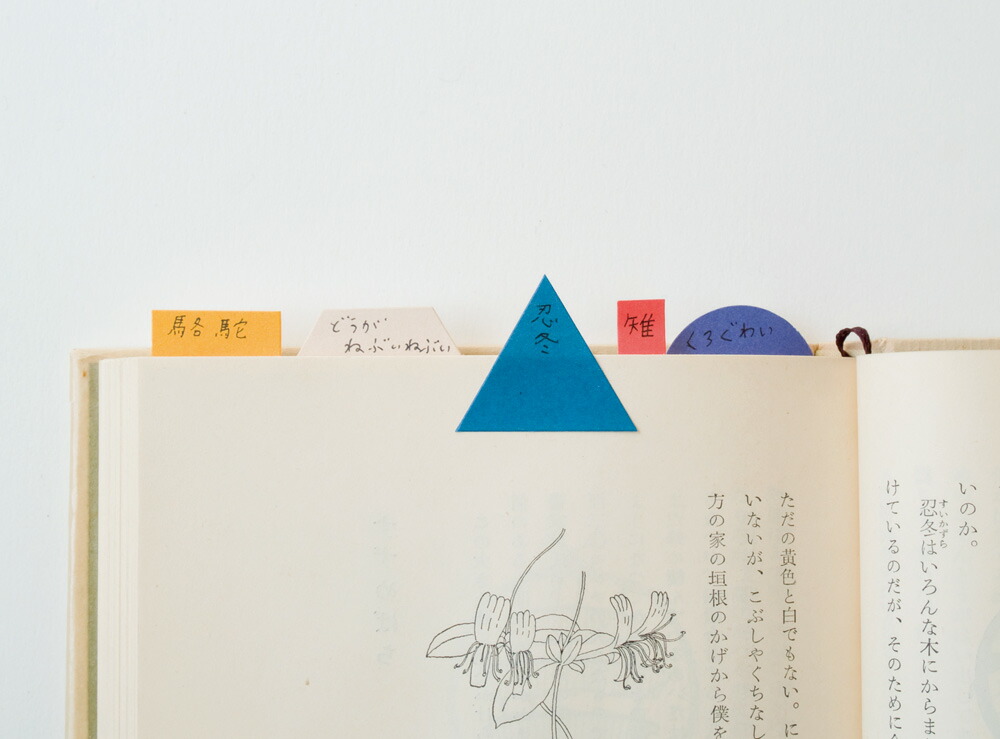 駱駝
どうが
ねぶいねぶい
忍冬
雉
くろぐわい
いのか。
すいかずら
忍冬はいろんな木にからま
けているのだが、そのために
ただの黄色と白でもない。に
いないが、こぶしやくちなし
方の家の垣根のかげから僕を